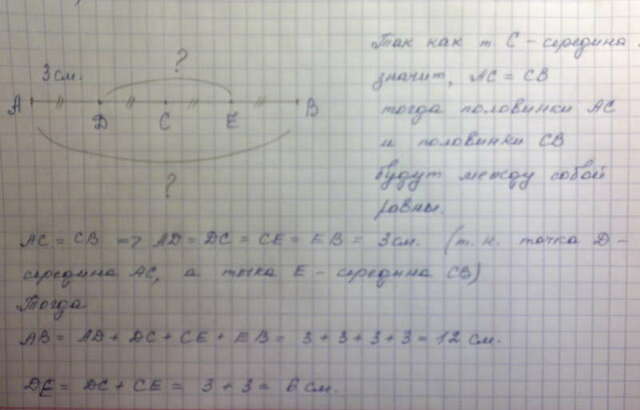 ?
3 см.
A D C E B
?
Так как т. C - середина
значит, AC = CB
тогда половинки AC
и половинки CB
будут между собой
равны.
AC = CB => AD = DC = CE = EB = 3 см. (т.к. точка D -
середина AC, а точка E - середина CB)
Тогда
AB = AD + DC + CE + EB = 3 + 3 + 3 + 3 = 12 см.
DE = DC + CE = 3 + 3 = 6 см.